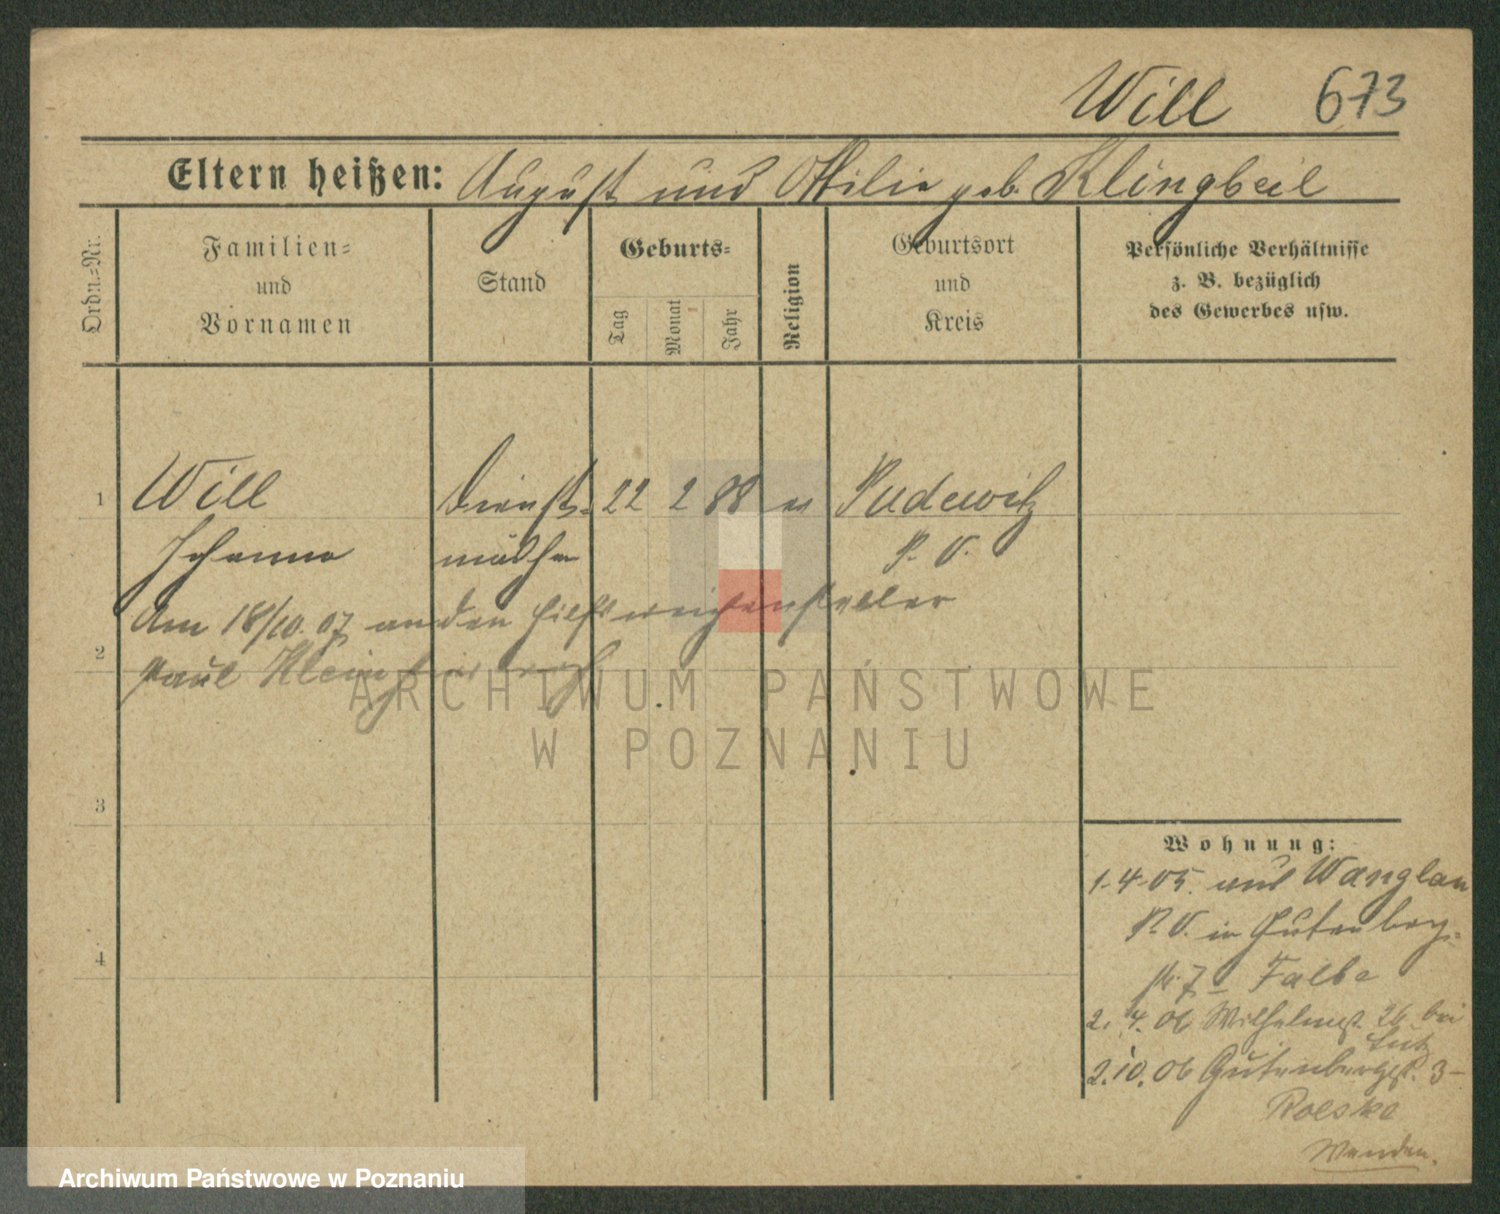 Will 673
Eltern heißen: August und Ottilie geb. Klingbeil
Ordn.=Nr.
Familien=
und
Vornamen
Stand
Geburts=
Tag
Monat
Jahr
Religion
Geburtsort
und
Kreis
Persönliche Verhältnisse
z. B. bezüglich
des Gewerbes usw.
1 Will Dienst= 22 2 88 ev Pudewitz
Johanna mädchen P. O.
Am 18/10. 07 an den Hilfsweichensteller
2
Paul
3
4
Wohnung:
1.4.05. aus Wanglau
P. O. in Gutenberg=
str. 7 – Falbe
2. 4. 06 Wilhelmst. 26 bei
Lutz
2. 10. 06 Gutenbergst. 3 –
Roeske
Wenden.
ARCHIWUM PAŃSTWOWE
W POZNANIU
Archiwum Państwowe w Poznaniu